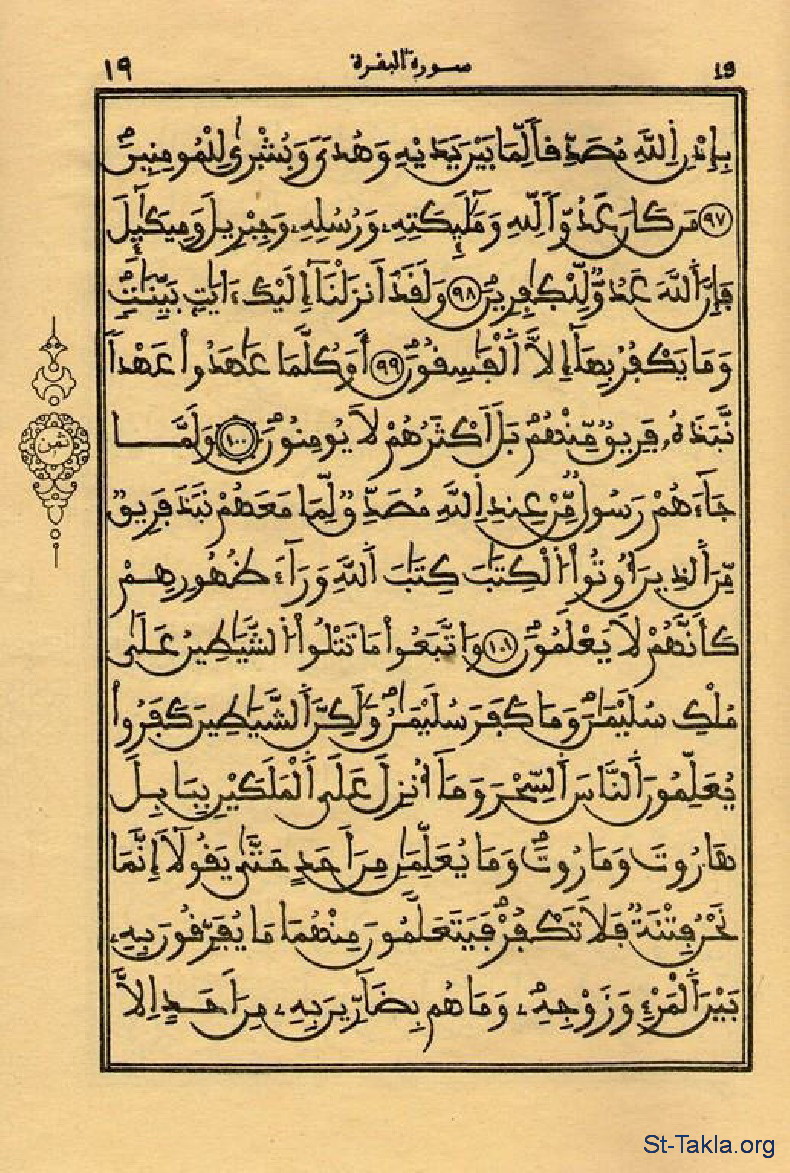 ١٩ سورة البقرة 19
بِإِذْنِ اِ۬للَّهِ مُصَدِّقاٗ لِّمَا بَيْنَ يَدَيْهِ وَهُديٗ وَبُشْر۪يٰ لِلْمُومِنِينَۖ
٩٧ مَن كَانَ عَدُوّاٗ لِّلهِ وَمَلَٰٓئِكَتِهِۦ وَرُسُلِهِۦ وَجِبْرِيلَ وَمِيكَٰٓئِلَ
فَإِنَّ اَ۬للَّهَ عَدُوّٞ لِّلْكٰ۪فِرِينَۖ ٩٨ وَلَقَدَ اَنزَلْنَآ إِلَيْكَ ءَايَٰتِۢ بَيِّنَٰتٖۖ
وَمَا يَكْفُرُ بِهَآ إِلَّا اَ۬لْفَٰسِقُونَۖ ٩٩ أَوَكُلَّمَا عَٰهَدُواْ عَهْداٗ
نَّبَذَهُۥ فَرِيقٞ مِّنْهُمۖ بَلَ اَكْثَرُهُمْ لَا يُومِنُونَۖ ١٠٠ وَلَمَّا
جَآءَهُمْ رَسُولٞ مِّنْ عِندِ اِ۬للَّهِ مُصَدِّقٞ لِّمَا مَعَهُمْ نَبَذَ فَرِيقٞ
مِّنَ اَ۬لذِينَ أُوتُواْ اُ۬لْكِتَٰبَ كِتَٰبَ اَ۬للَّهِ وَرَآءَ ظُهُورِهِمْ
كَأَنَّهُمْ لَا يَعْلَمُونَۖ ١٠١ وَاتَّبَعُواْ مَا تَتْلُواْ اُ۬لشَّيَٰطِينُ عَلَيٰ
مُلْكِ سُلَيْمَٰنَۖ وَمَا كَفَرَ سُلَيْمَٰنُۖ وَلَٰكِنَّ اَ۬لشَّيَٰطِينَ كَفَرُواْ
يُعَلِّمُونَ اَ۬لنَّاسَ اَ۬لسِّحْرَ وَمَآ أُنزِلَ عَلَي اَ۬لْمَلَكَيْنِ بِبَابِلَ
هَٰرُوتَ وَمَٰرُوتَۖ وَمَا يُعَلِّمَٰنِ مِنَ اَحَدٍ حَتَّيٰ يَقُولَآ إِنَّمَا
نَحْنُ فِتْنَةٞ فَلَا تَكْفُرْۖ فَيَتَعَلَّمُونَ مِنْهُمَا مَا يُفَرِّقُونَ بِهِۦ
بَيْنَ اَ۬لْمَرْءِ وَزَوْجِهِۦۖ وَمَا هُم بِضَآرِّينَ بِهِۦ مِنَ اَحَدٍ اِلَّا
ثمن
St-Takla.org